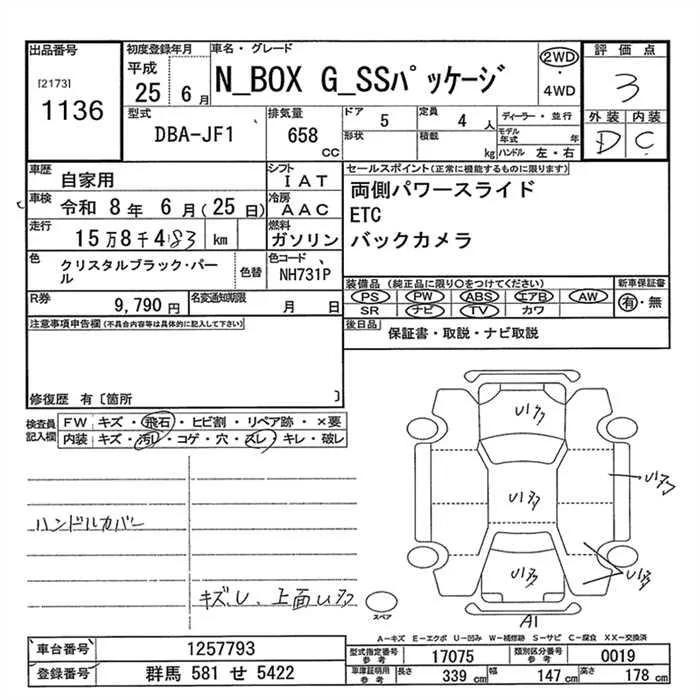 出品番号
[2173]
1136
初度登録年月
平成
25 6月
車名・グレード
N_BOX G_SSパッケージ
2WD
・
4WD
評価点
3
外装 内装
D C
型式
DBA-JF1
排気量
658
CC
ドア
5
定員
4 人
形状
積載
kg
ディーラー・並行
モデル年式 年
ハンドル 左・右
車歴
自家用
シフト
IAT
車検
令和 8年 6月(25日)
冷房
AAC
走行
15万8千483 km
燃料
ガソリン
色
クリスタルブラック・パール
色替
色コード
NH731P
R券
9,790円
名変通知期限
月 日
セールスポイント(正常に機能するものに限ります)
両側パワースライド
ETC
バックカメラ
装備品 (純正品に限り○をつけてください)
PS PW ABS エアB AW
SR ナビ TV カワ
新車保証書
有・無
後日品
保証書・取説・ナビ取説
注意事項申告欄(不具合内容等は具体的に記入して下さい)
修復歴 有〔箇所 〕
検査員記入欄
FW キズ・飛石・ヒビ割・リペア跡・×要
内装 キズ・汚レ・コゲ・穴・スレ・キレ・破レ
ハンドルカバー
キズ、U、上面
スペア
A1
A-キズ E-エクボ U-凹み W-補修跡 S-サビ C-腐食 XX-交換済
車台番号
1257793
登録番号
群馬 581 せ 5422
型式指定番号
参考
17075
類別区分番号
参考
0019
車庫証明用
参考
長さ 339 cm
幅 147 cm
高さ 178 cm